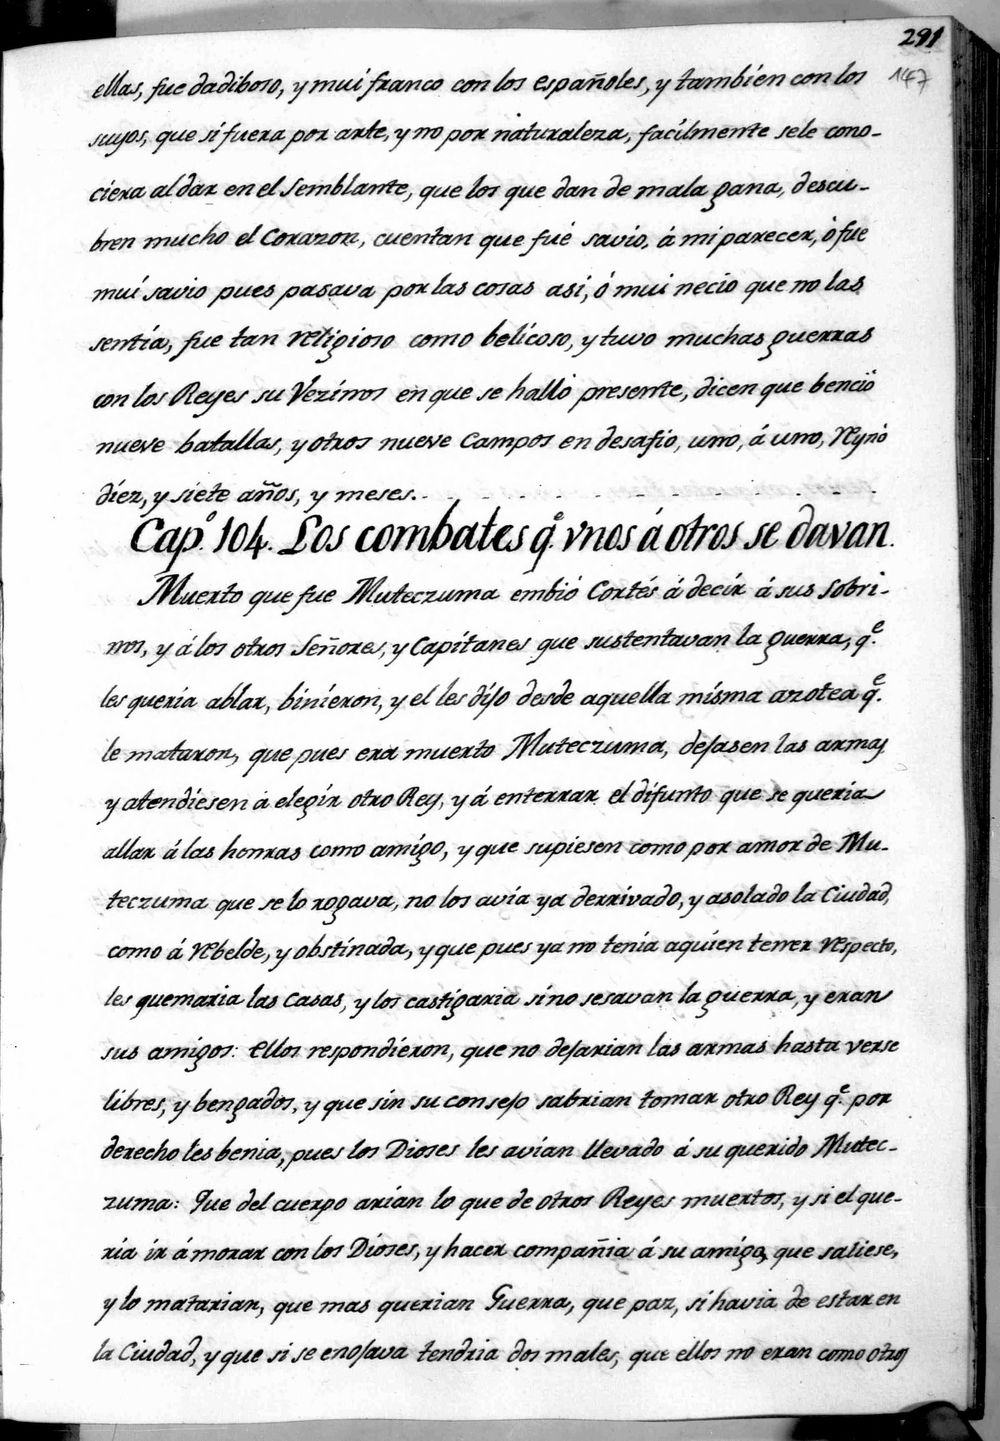 291
147
ellas, fue dadiboso, y mui franco con los españoles, y tambien con los
suyos, que si fuera por arte, y no por naturaleza, facilmente sele cono-
ciera al dar en el semblante, que los que dan de mala gana, descu-
bren mucho el Corazon, cuentan que fué savio, á mi parecer, ó fue
mui savio pues pasava por las cosas asi, ó mui necio que no las
sentia, fue tan religioso como belicoso, y tuvo muchas guerras
con los Reyes su Vezinos en que se halló presente, dicen que benció
nueve batallas, y otros nueve Campos en desafio, uno, á uno, Reynó
diez, y siete años, y meses.
Cap.º 104. Los combates q.º vnos á otros se davan.
Muerto que fue Muteczuma embió Cortés á decir á sus Sobri-
nos, y á los otros Señores, y Capitanes que sustentavan la guerra, q.e
les queria ablar, binieron, y el les dijo desde aquella misma azotea q.e
le mataron, que pues era muerto Muteczuma, dejasen las armas
y atendiesen á elegir otro Rey, y á enterrar el difunto que se queria
allar á las honras como amigo, y que supiesen como por amor de Mu-
teczuma que se lo rogava, no los avia ya derrivado, y asolado la Ciudad,
como á rebelde, y obstinada, y que pues ya no tenia aquien tener respecto,
les quemaria las Casas, y los castigaria sino sesavan la guerra, y eran
sus amigos: ellos respondieron, que no dejarian las armas hasta verse
libres, y bengados, y que sin su consejo sabrian tomar otro Rey q.e por
derecho les benia, pues los Dioses les avian llevado á su querido Mutec-
zuma: Que del cuerpo arian lo que de otros Reyes muertos, y si el que-
ria ir á morar con los Dioses, y hacer compañia á su amigo, que saliese,
y lo matarian, que mas querian Guerra, que paz, si havia de estar en
la Ciudad, y que si se enojava tendria dos males, que ellos no eran como otros